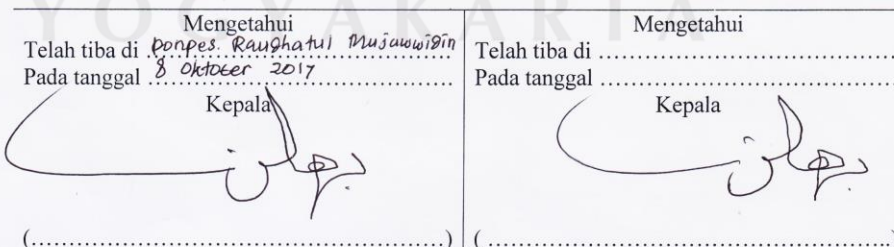 YOGYAKARTA
Mengetahui
Telah tiba di ponpes. Raudhatul Mujawwidin
Pada tanggal 8 Oktober 2017
Kepala
(................................................)
Mengetahui
Telah tiba di ................................
Pada tanggal ................................
Kepala
( ................................................